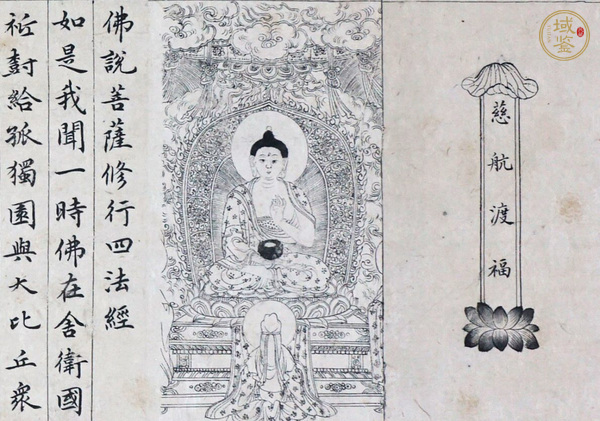 域鉴
慈航渡福
佛說菩薩修行四法經
如是我聞一時佛在舍衛國
祈尌給孤獨園與大比丘衆